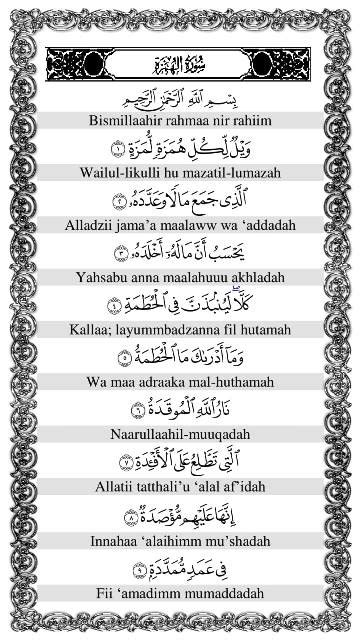 سُورَةُ الْهُمَزَةِ
بِسْمِ اللَّهِ الرَّحْمَٰنِ الرَّحِيمِ
Bismillaahir rahmaa nir rahiim
وَيْلٌ لِّكُلِّ هُمَزَةٍ لُّمَزَةٍ ١
Wailul-likulli hu mazatil-lumazah
الَّذِي جَمَعَ مَالًا وَعَدَّدَهُ ٢
Alladzii jama’a maalaww wa ‘addadah
يَحْسَبُ أَنَّ مَالَهُ أَخْلَدَهُ ٣
Yahsabu anna maalahuuu akhladah
كَلَّا ۖ لَيُنبَذَنَّ فِي الْحُطَمَةِ ٤
Kallaa; layummbadzanna fil hutamah
وَمَا أَدْرَاكَ مَا الْحُطَمَةُ ٥
Wa maa adraaka mal-huthamah
نَارُ اللَّهِ الْمُوقَدَةُ ٦
Naarullaahil-muuqadah
الَّتِي تَطَّلِعُ عَلَى الْأَفْئِدَةِ ٧
Allatii tatthali’u ‘alal af’idah
إِنَّهَا عَلَيْهِم مُّؤْصَدَةٌ ٨
Innahaa ‘alaihimm mu’shadah
فِي عَمَدٍ مُّمَدَّدَةٍ ٩
Fii ‘amadimm mumaddadah